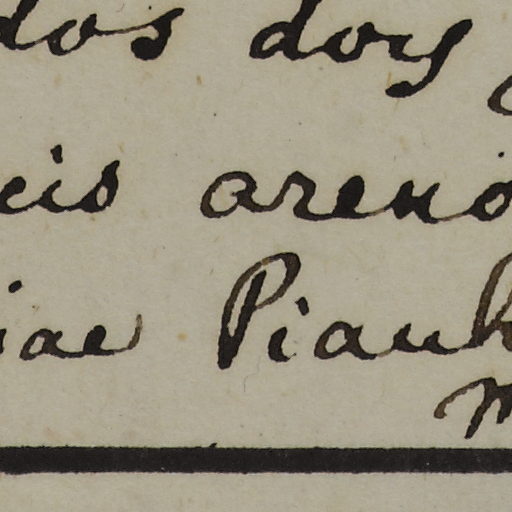 dos dos
cis areno
iae Piauh
M